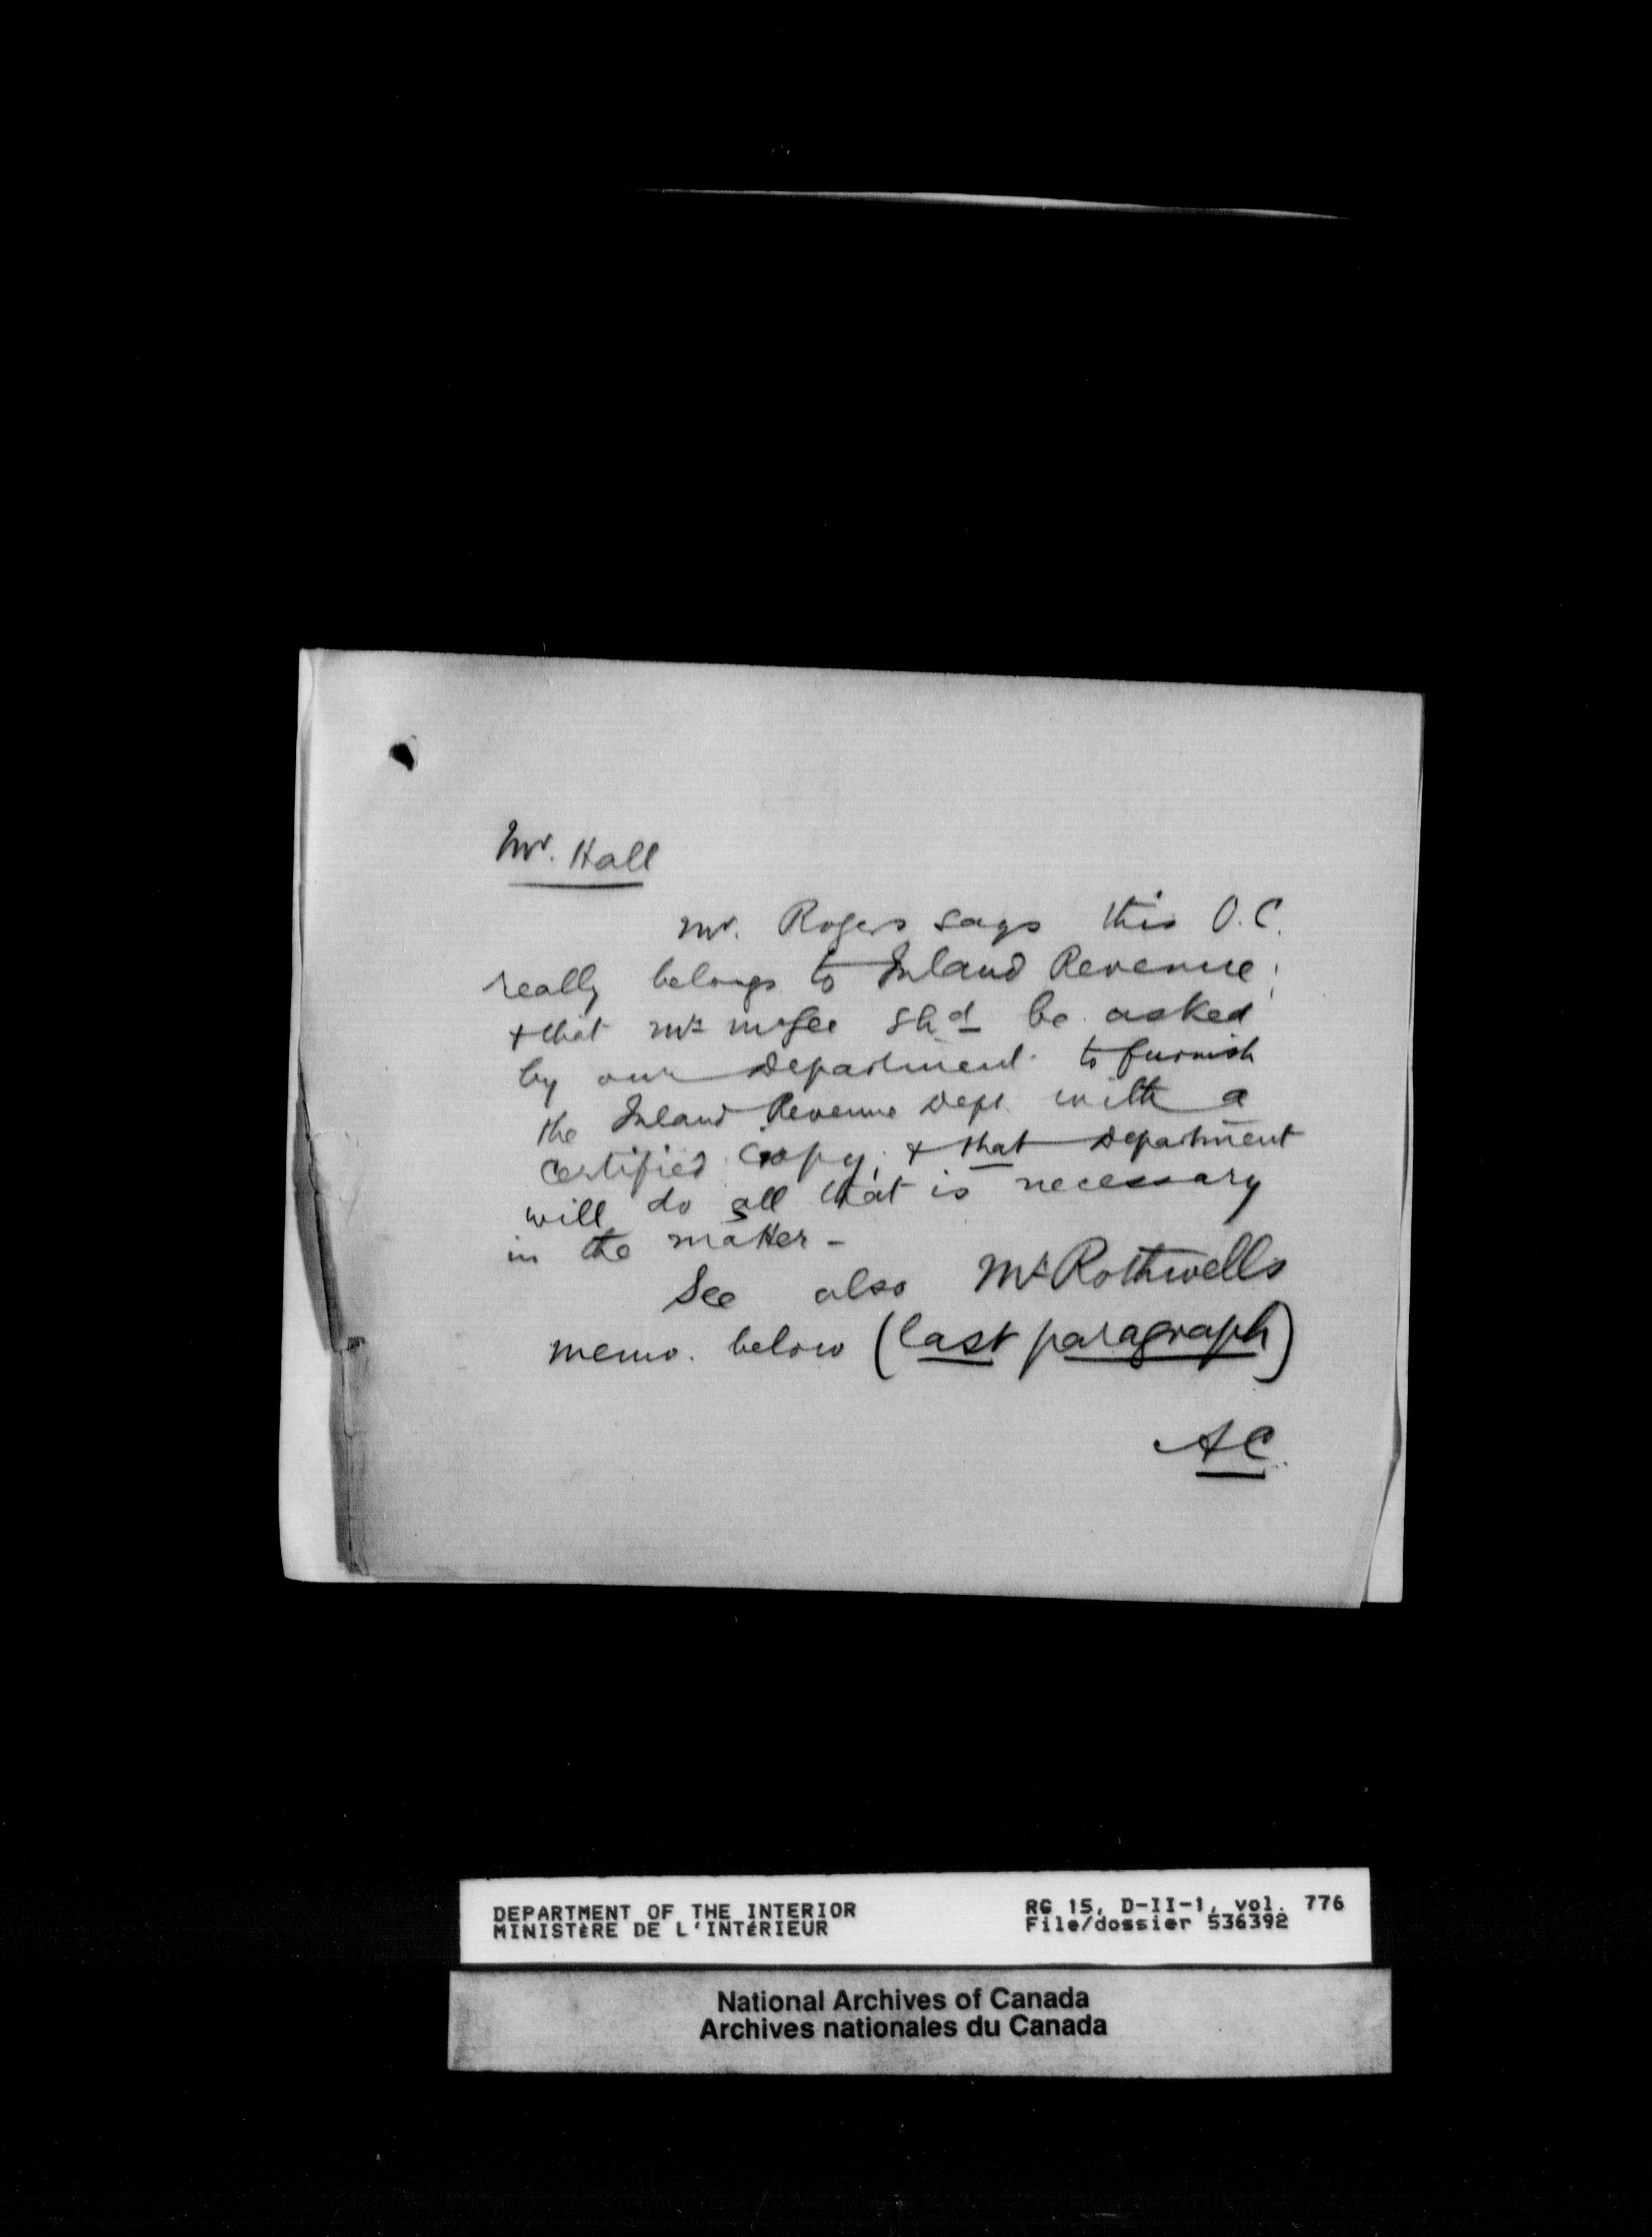 Mr. Hall
Mr. Rogers says this O.C.
really belongs to Inland Revenue;
& that Mr McGee shd be asked
by our Department to furnish
the Inland Revenue Dept. with a
certified copy; & that Department
will do all that is necessary
in the matter -
See also Mr Rothwells
memo. below (last paragraph)
AC.
DEPARTMENT OF THE INTERIOR
MINISTÈRE DE L'INTÉRIEUR
RG 15, D-II-1, vol. 776
File/dossier 536392
National Archives of Canada
Archives nationales du Canada